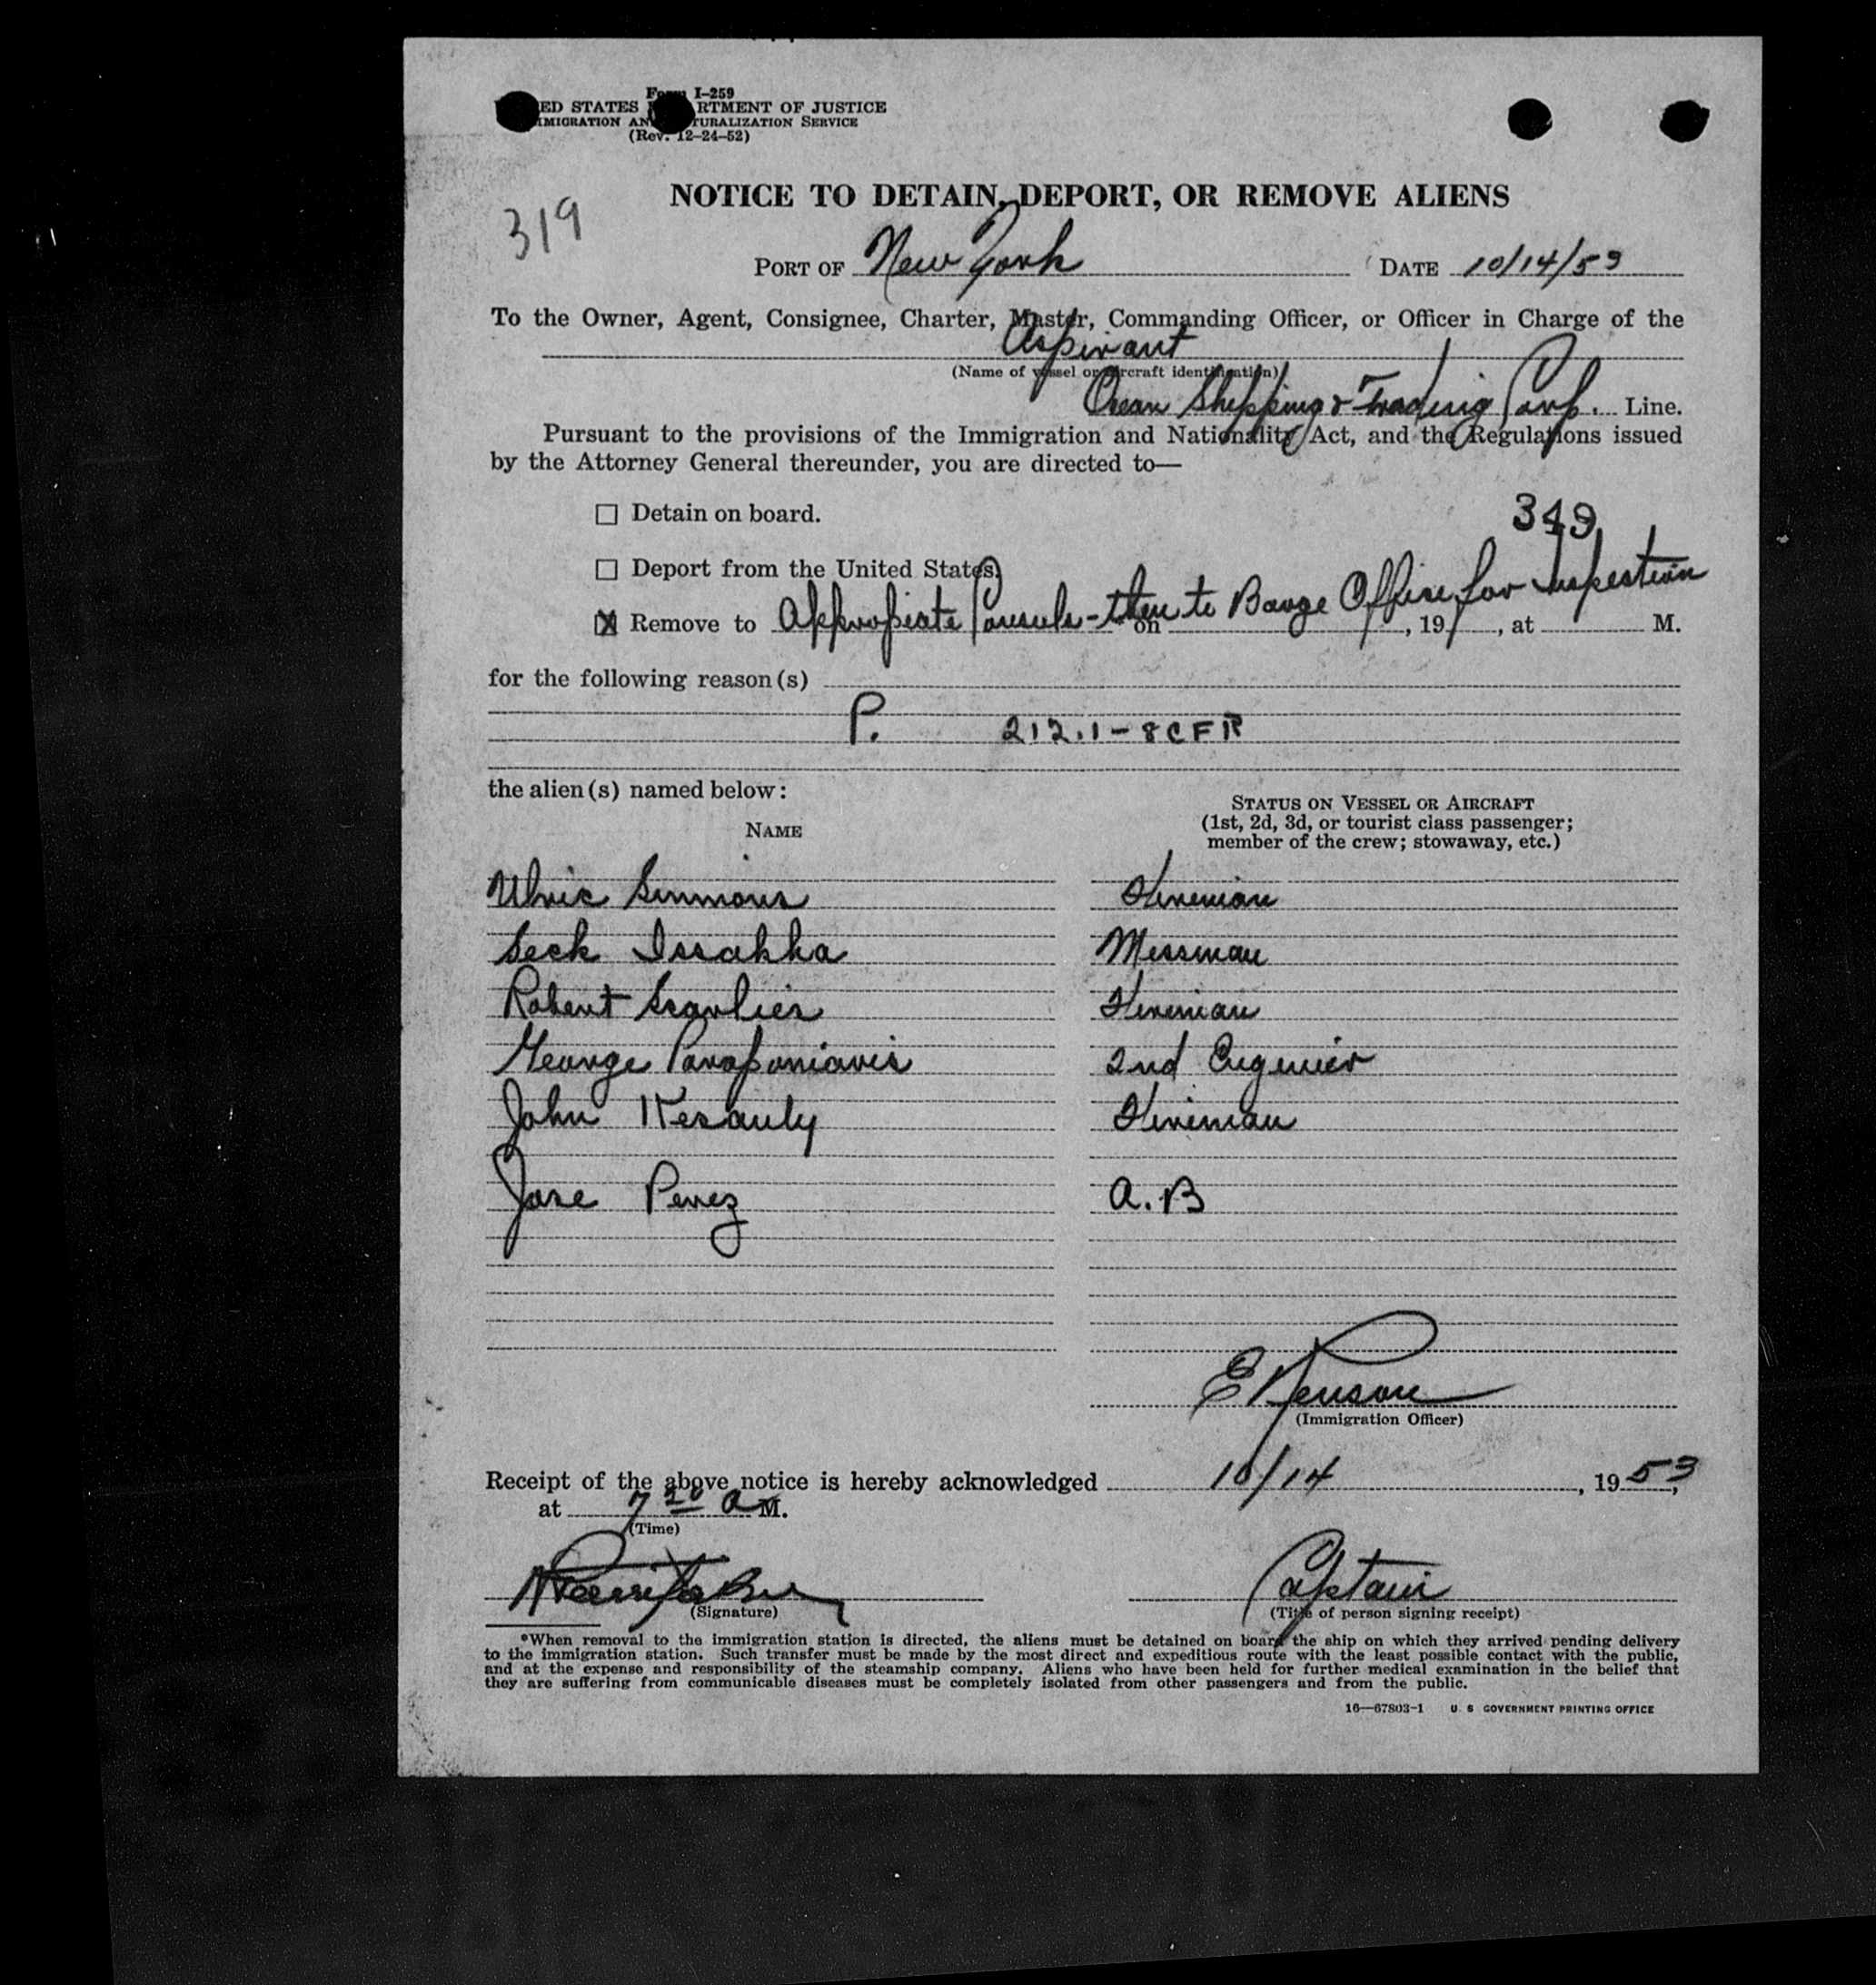 Form I-259
UNITED STATES DEPARTMENT OF JUSTICE
IMMIGRATION AND NATURALIZATION SERVICE
(Rev. 12-24-52)
319
NOTICE TO DETAIN, DEPORT, OR REMOVE ALIENS
PORT OF New York DATE 10/14/53
To the Owner, Agent, Consignee, Charter, Master, Commanding Officer, or Officer in Charge of the
Aspirant
(Name of vessel or aircraft identification)
Ocean Shipping & Trading Corp. Line.
Pursuant to the provisions of the Immigration and Nationality Act, and the Regulations issued
by the Attorney General thereunder, you are directed to—
☐ Detain on board.
349
☐ Deport from the United States.
☒ Remove to Appropiate Consuls - then to Barge Office for Inspection on , 19 , at M.
for the following reason(s)
P. 212.1-8CFR
the alien(s) named below:
STATUS ON VESSEL OR AIRCRAFT
(1st, 2d, 3d, or tourist class passenger;
member of the crew; stowaway, etc.)
NAME
Ulric Simmons Fireman
Seck Issakha Messman
Robert Fireman
George Paraponiaris 2nd Engineer
John Kesauly Fireman
Jose Perez A.B
(Immigration Officer)
Receipt of the above notice is hereby acknowledged 10/14, 1953,
at 7 20 A M.
(Time)
Captain
(Signature) (Title of person signing receipt)
*When removal to the immigration station is directed, the aliens must be detained on board the ship on which they arrived pending delivery
to the immigration station. Such transfer must be made by the most direct and expeditious route with the least possible contact with the public,
and at the expense and responsibility of the steamship company. Aliens who have been held for further medical examination in the belief that
they are suffering from communicable diseases must be completely isolated from other passengers and from the public.
16—67803-1 U. S. GOVERNMENT PRINTING OFFICE